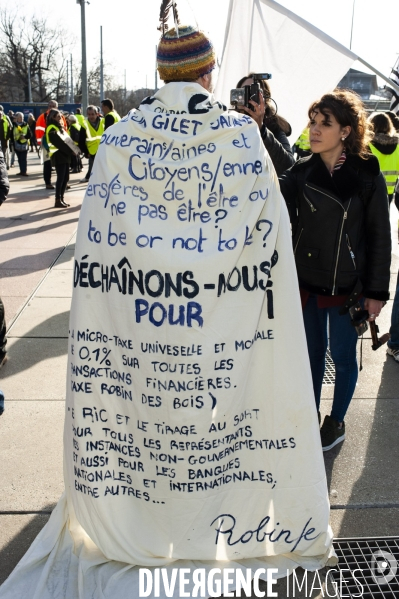 GILET JAUNE
Citoyen/aines et
Citoyens/enne
ers/ères de l'être ou
ne pas être?
to be or not to b?
DÉCHAÎNONS-NOUS
POUR
MICRO-TAXE UNIVESELLE ET MONDIALE
0,1% SUR TOUTES LES
TRANSACTIONS FINANCIÈRES.
TAXE ROBIN DES BOIS)
E RIC ET LE TIRAGE AU SORT
POUR TOUS LES REPRÉSENTANTS
ES INSTANCES NON-GOUVERNEMENTALES
ET AUSSI POUR LES BANQUES
NATIONALES ET INTERNATIONALES,
ENTRE AUTRES...
Robin/e
DIVERGENCE IMAGES